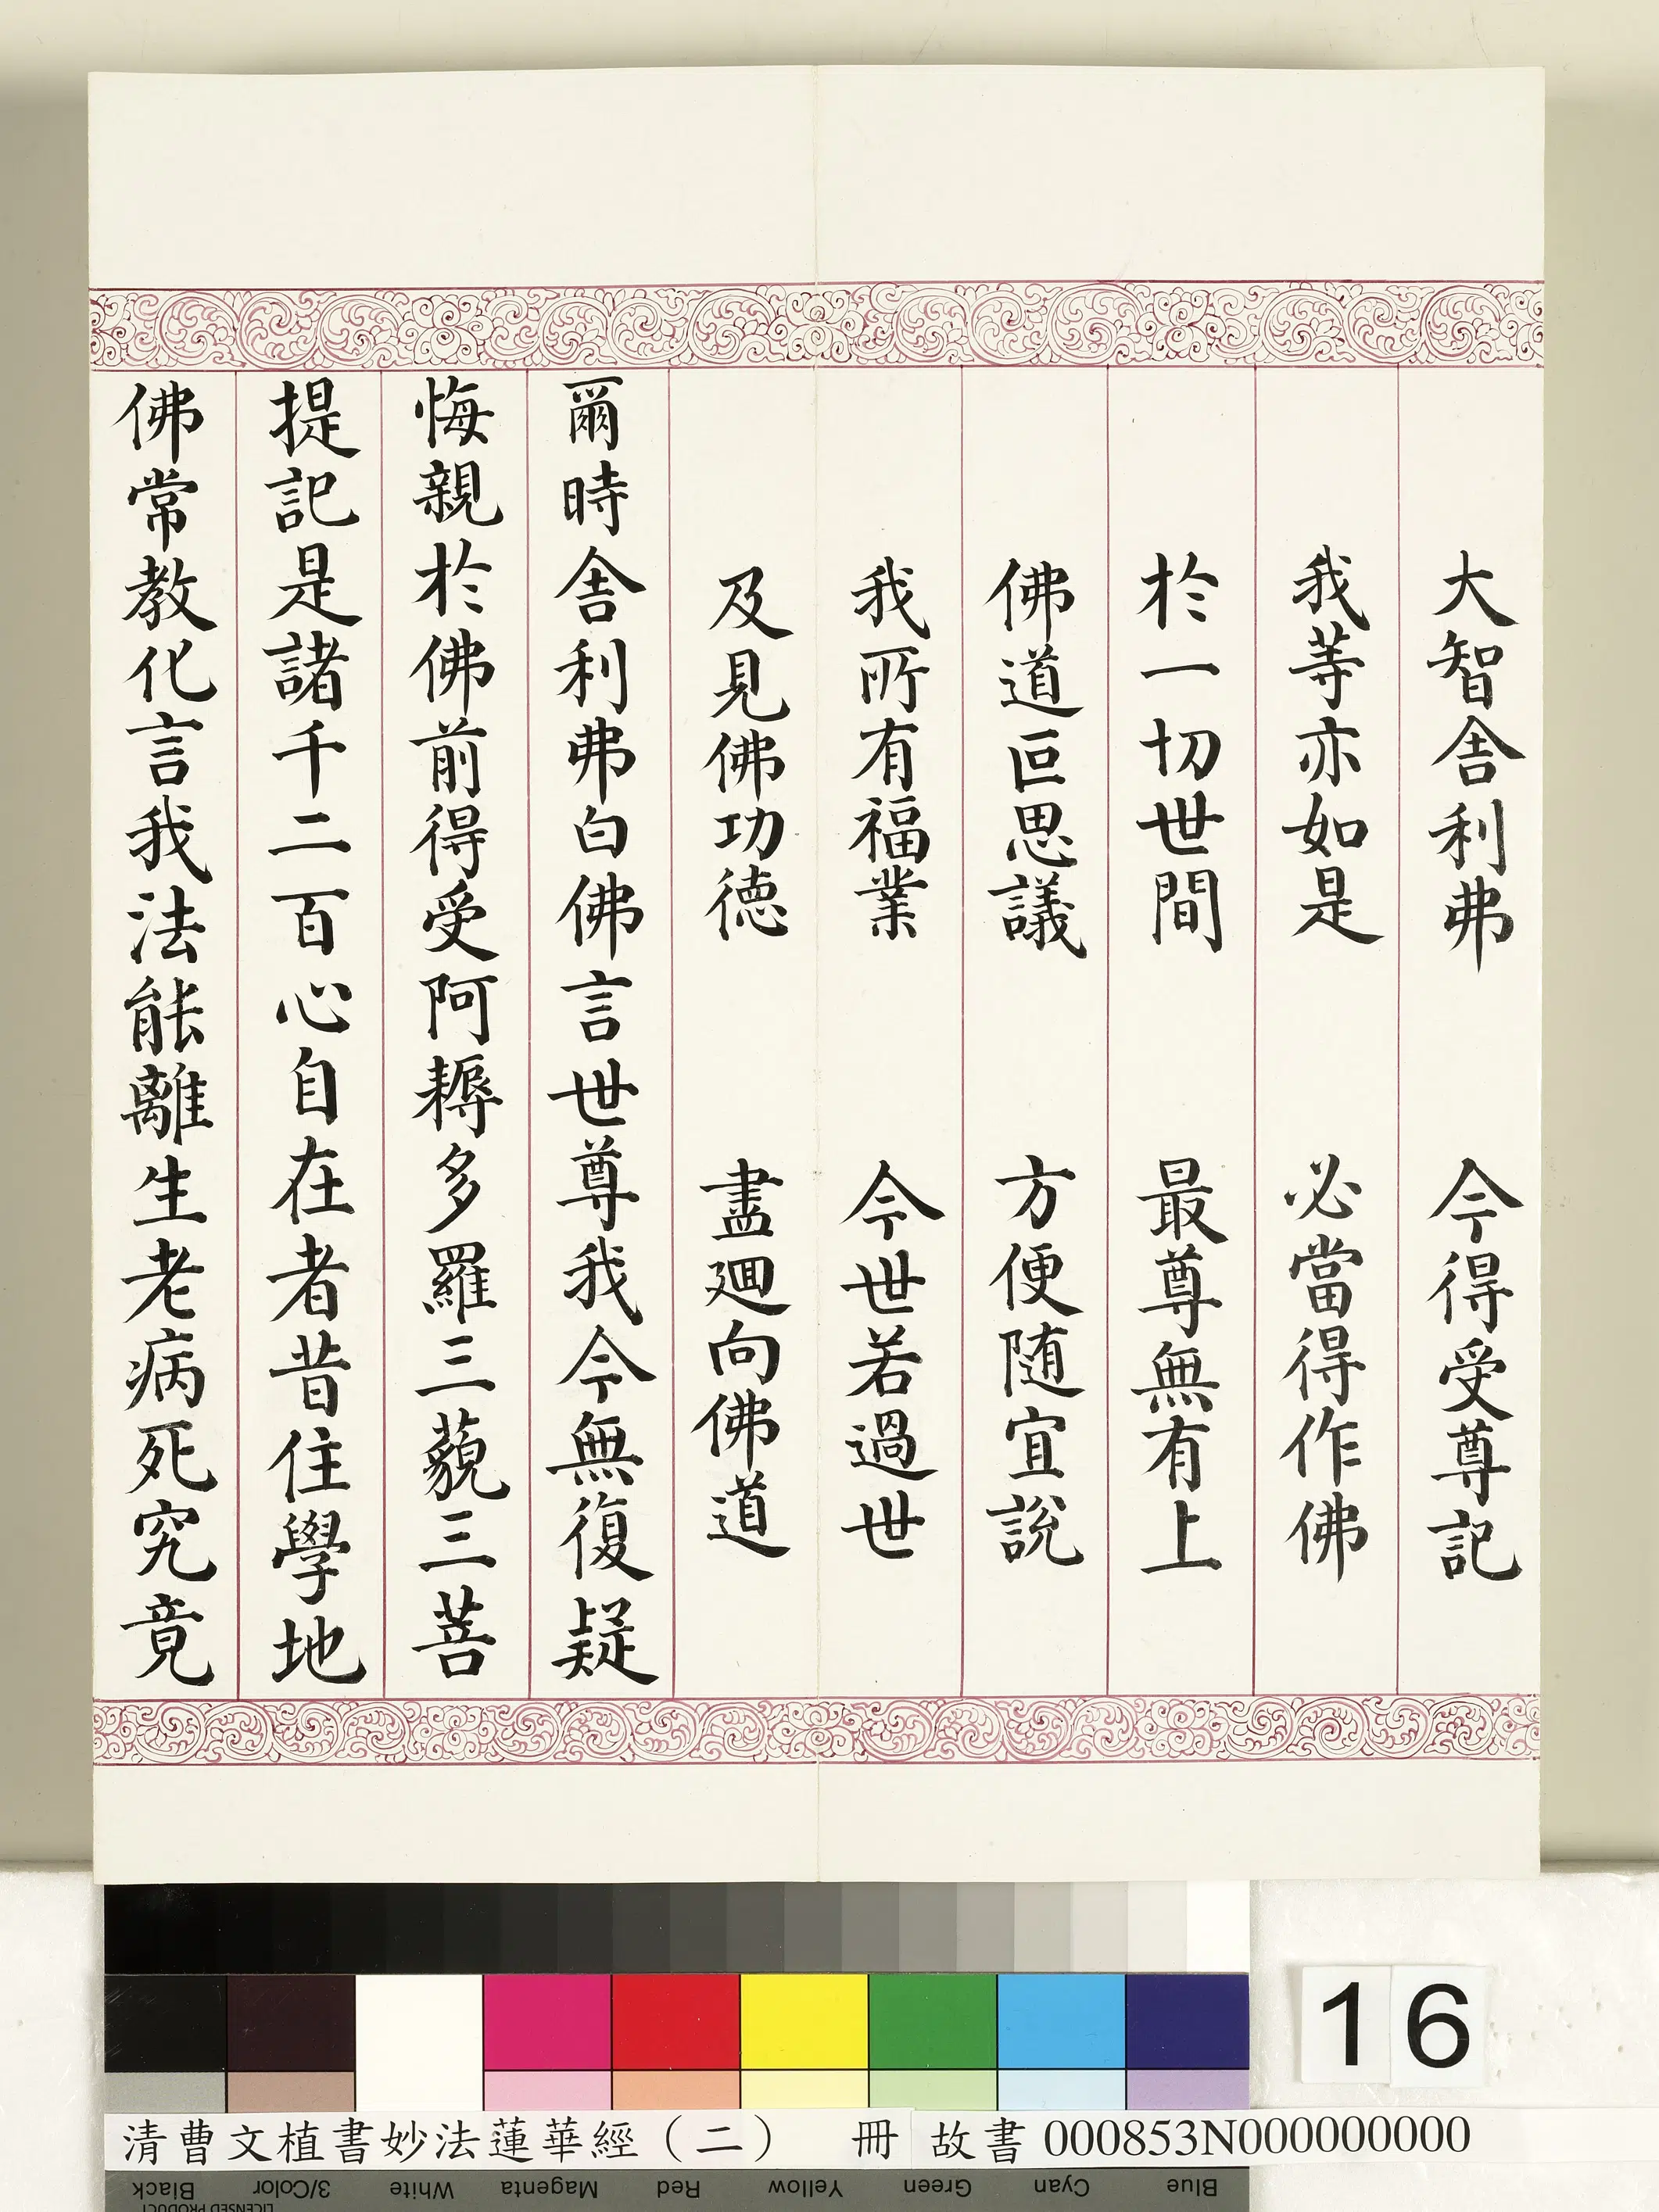 大智舍利弗　今得受尊記
我等亦如是　必當得作佛
於一切世間　最尊無有上
佛道叵思議　方便随宜說
我所有福業　今世若過世
及見佛功德　盡迴向佛道
爾時舍利弗白佛言世尊我今無復疑
悔親於佛前得受阿耨多羅三藐三菩
提記是諸千二百心自在者昔住學地
佛常教化言我法能離生老病死究竟
16
清曹文植書妙法蓮華經（二）　冊　故書000853N000000000
Black 3/Color White Magenta Red Yellow Green Cyan Blue
LICENSED PRODUCT